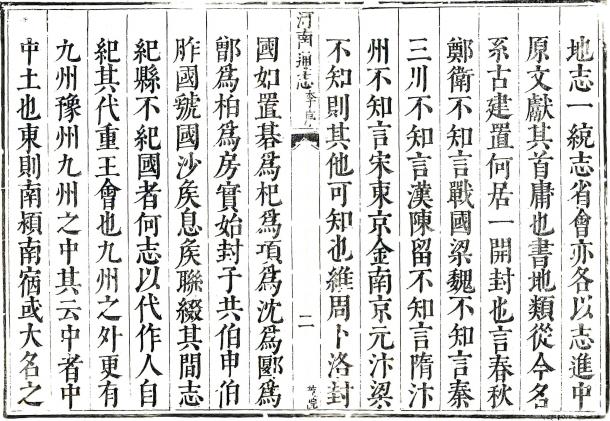 地志一統志省會亦各以志進中
原文獻其首庸也書地類從今名
系古建置何居一開封也言春秋
鄭衛不知言戰國梁魏不知言秦
三川不知言漢陳留不知言隋汴
州不知言宋東京金南京元汴梁
不知則其他可知也維周卜洛封
河南通志
二
國如置棊為杞為項為沈為郾為
鄫為柏為房實始封子共伯申伯
胙國虢國沙矦息矦聯綴其間志
紀縣不紀國者何志以代作人自
紀其代重王會也九州之外更有
九州豫州九州之中其云中者中
中土也東則南潁南宿或大名之